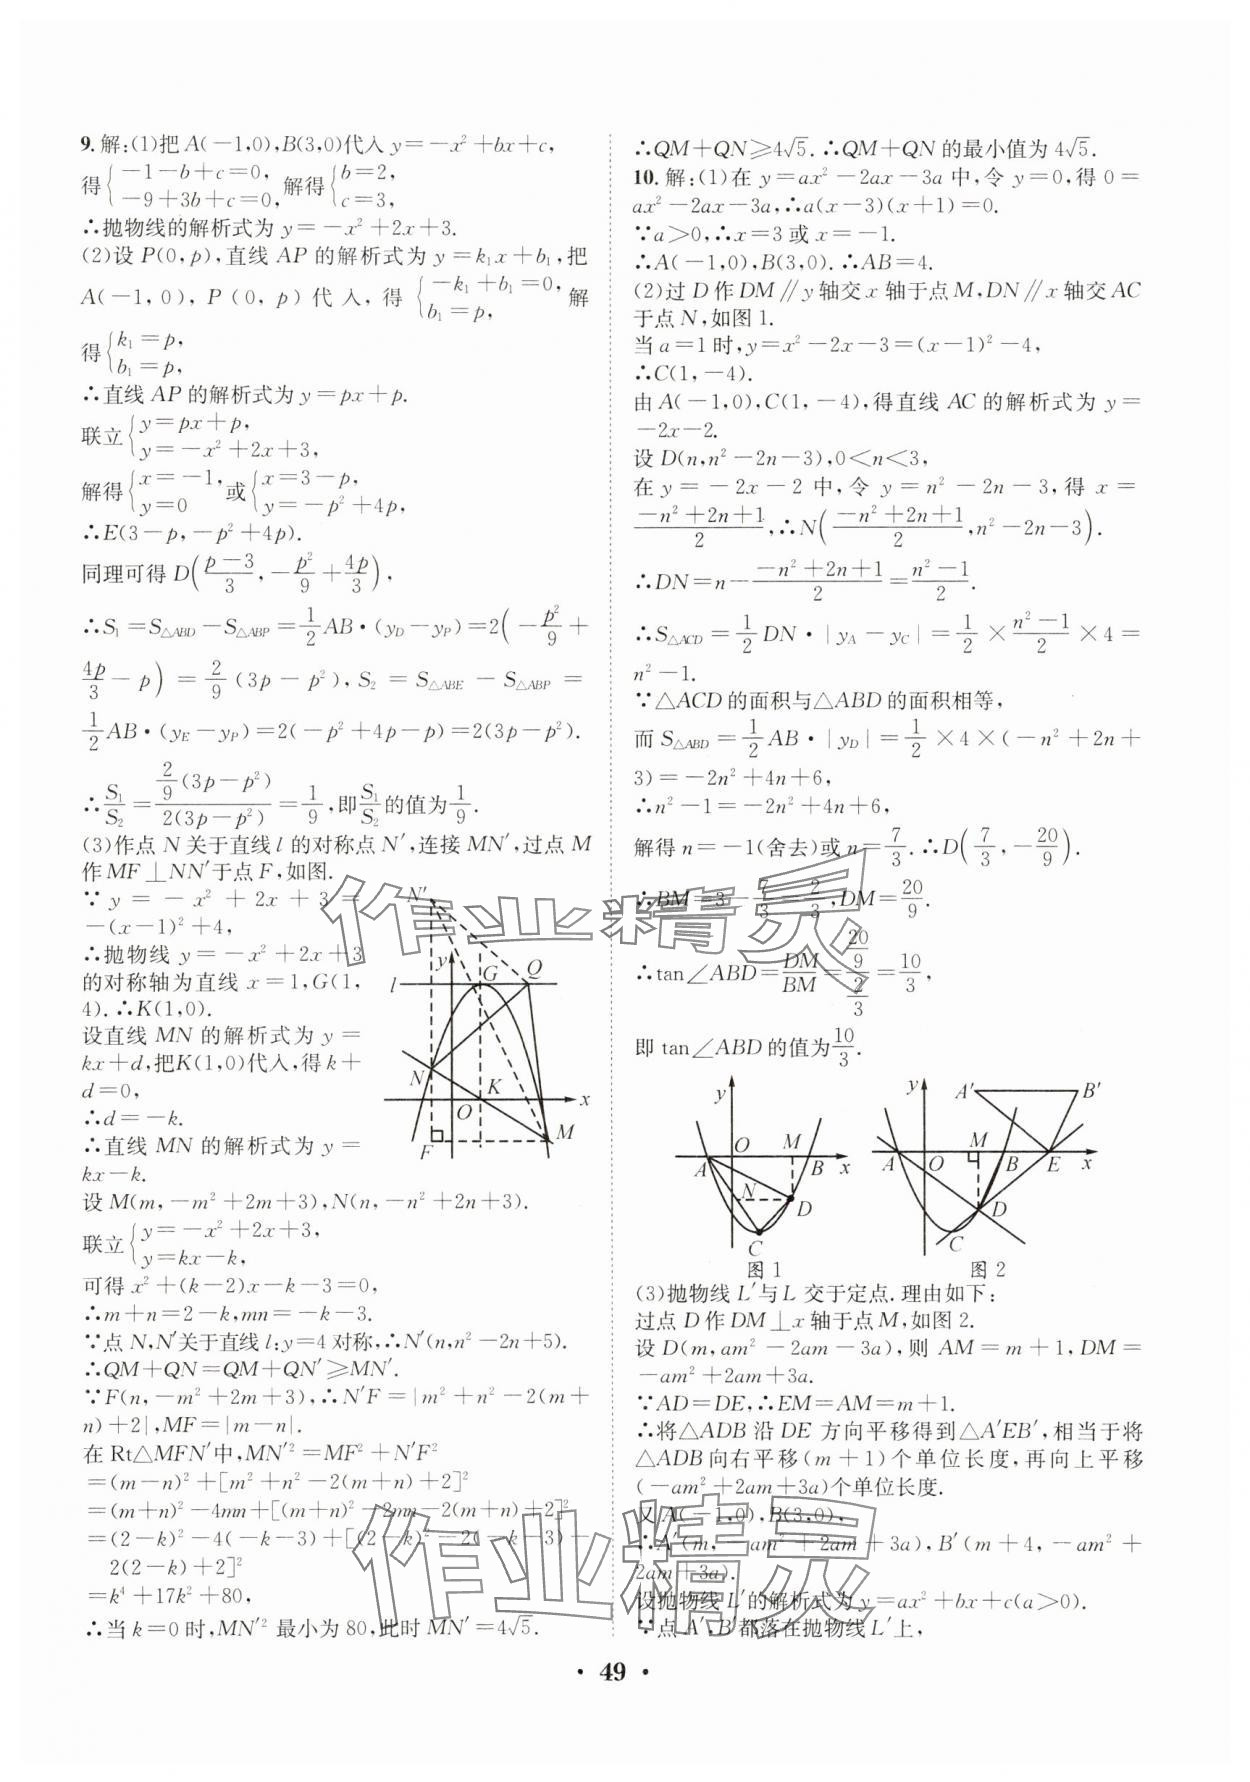 9. 解:(1)把 A(−1,0),B(3,0)代入 y=−x²+bx+c,
得{−1−b+c=0, −9+3b+c=0, 解得{b=2, c=3,
∴抛物线的解析式为 y=−x²+2x+3.
(2)设 P(0,p),直线 AP 的解析式为 y=k₁x+b₁,把
A(−1,0),P(0,p)代入,得{−k₁+b₁=0, b₁=p, 解
得{k₁=p, b₁=p,
∴直线 AP 的解析式为 y=px+p.
联立{y=px+p, y=−x²+2x+3,
解得{x=−1, y=0 或{x=3−p, y=−p²+4p,
∴E(3−p,−p²+4p).
同理可得 D((p−3)/3,−p²/9+4p/3),
∴S₁=S△ABD−S△ABP=1/2 AB·(y_D−y_P)=2(−p²/9+
4p/3−p)=2/9(3p−p²),S₂=S△ABE−S△ABP=
1/2 AB·(y_E−y_P)=2(−p²+4p−p)=2(3p−p²).
∴S₁/S₂=(2/9(3p−p²))/(2(3p−p²))=1/9,即S₁/S₂的值为1/9.
(3)作点 N 关于直线 l 的对称点 N′,连接 MN′,过点 M
作 MF⊥NN′于点 F,如图.
∵y=−x²+2x+3=
−(x−1)²+4,
∴抛物线 y=−x²+2x+3
的对称轴为直线 x=1,G(1,
4).∴K(1,0).
设直线 MN 的解析式为 y=
kx+d,把K(1,0)代入,得 k+
d=0,
∴d=−k.
∴直线 MN 的解析式为 y=
kx−k.
N′ y G Q l N K O x F M
设 M(m,−m²+2m+3),N(n,−n²+2n+3).
联立{y=−x²+2x+3, y=kx−k,
可得 x²+(k−2)x−k−3=0,
∴m+n=2−k,mn=−k−3.
∵点 N,N′关于直线 l:y=4 对称,∴N′(n,n²−2n+5).
∴QM+QN=QM+QN′≥MN′.
∵F(n,−m²+2m+3),∴N′F=|m²+n²−2(m+
n)+2|,MF=|m−n|.
在 Rt△MFN′中,MN′²=MF²+N′F²
=(m−n)²+[m²+n²−2(m+n)+2]²
=(m+n)²−4mn+[(m+n)²−2mn−2(m+n)+2]²
=(2−k)²−4(−k−3)+[(2−k)²−2(−k−3)−
2(2−k)+2]²
=k⁴+17k²+80,
∴当 k=0 时,MN′² 最小为 80,此时 MN′=4√5.
∴QM+QN≥4√5.∴QM+QN 的最小值为 4√5.
10. 解:(1)在 y=ax²−2ax−3a 中,令 y=0,得 0=
ax²−2ax−3a,∴a(x−3)(x+1)=0.
∵a>0,∴x=3 或 x=−1.
∴A(−1,0),B(3,0).∴AB=4.
(2)过 D 作 DM∥y 轴交 x 轴于点 M,DN∥x 轴交 AC
于点 N,如图 1.
当 a=1 时,y=x²−2x−3=(x−1)²−4,
∴C(1,−4).
由 A(−1,0),C(1,−4),得直线 AC 的解析式为 y=
−2x−2.
设 D(n,n²−2n−3),0<n<3,
在 y=−2x−2 中,令 y=n²−2n−3,得 x=
(−n²+2n+1)/2,∴N((−n²+2n+1)/2,n²−2n−3).
∴DN=n−(−n²+2n+1)/2=(n²−1)/2.
∴S△ACD=1/2 DN·|y_A−y_C|=1/2×(n²−1)/2×4=
n²−1.
∵△ACD 的面积与△ABD 的面积相等,
而 S△ABD=1/2 AB·|y_D|=1/2×4×(−n²+2n+
3)=−2n²+4n+6,
∴n²−1=−2n²+4n+6,
解得 n=−1(舍去)或 n=7/3.∴D(7/3,−20/9).
∴BM=3−7/3=2/3,DM=20/9.
∴tan∠ABD=DM/BM=(20/9)/(2/3)=10/3,
即 tan∠ABD 的值为10/3.
y O M A B x N D C
图 1
A′ B′ y M A O B E x D C
图 2
(3)抛物线 L′与 L 交于定点.理由如下:
过点 D 作 DM⊥x 轴于点 M,如图 2.
设 D(m,am²−2am−3a),则 AM=m+1,DM=
−am²+2am+3a.
∵AD=DE,∴EM=AM=m+1.
∴将△ADB 沿 DE 方向平移得到△A′EB′,相当于将
△ADB 向右平移(m+1)个单位长度,再向上平移
(−am²+2am+3a)个单位长度.
又 A(−1,0),B(3,0),
∴A′(m,−am²+2am+3a),B′(m+4,−am²+
2am+3a).
设抛物线 L′的解析式为 y=ax²+bx+c(a>0).
∵点 A′,B′都落在抛物线 L′上,
· 49 ·
作业精灵
作业精灵